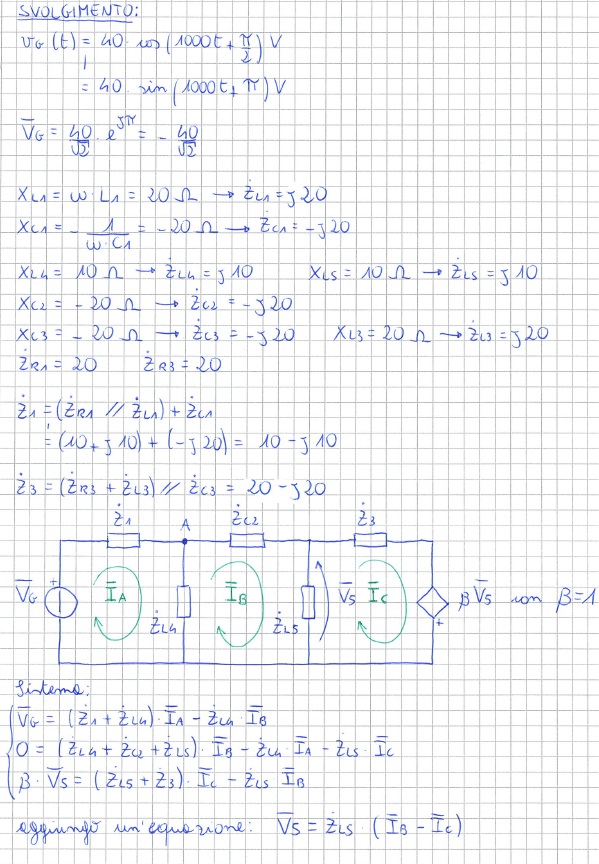 SVOLGIMENTO:
vG(t) = 40 · cos(1000t + π/2) V
= 40 · sin(1000t + π) V
V̅G = 40/√2 · e^jπ = - 40/√2
XL1 = ω · L1 = 20 Ω → ŻL1 = j20
XC1 = - 1/(ω·C1) = -20 Ω → ŻC1 = -j20
XL4 = 10 Ω → ŻL4 = j10 XL5 = 10 Ω → ŻL5 = j10
XC2 = -20 Ω → ŻC2 = -j20
XC3 = -20 Ω → ŻC3 = -j20 XL3 = 20 Ω → ŻL3 = j20
ŻR1 = 20 ŻR3 = 20
Ż1 = (ŻR1 // ŻL1) + ŻC1
= (10 + j10) + (-j20) = 10 - j10
Ż3 = (ŻR3 + ŻL3) // ŻC3 = 20 - j20
Ż1 A ŻC2 Ż3
V̅G + I̅A ŻL4 I̅B ŻL5 V̅5 I̅C + β V̅5 con β=1
Sistema:
V̅G = (Ż1 + ŻL4) · I̅A - ŻL4 · I̅B
0 = (ŻL4 + ŻC2 + ŻL5) · I̅B - ŻL4 · I̅A - ŻL5 · I̅C
β · V̅5 = (ŻL5 + Ż3) · I̅C - ŻL5 I̅B
aggiungo un'equazione: V̅5 = ŻL5 · (I̅B - I̅C)